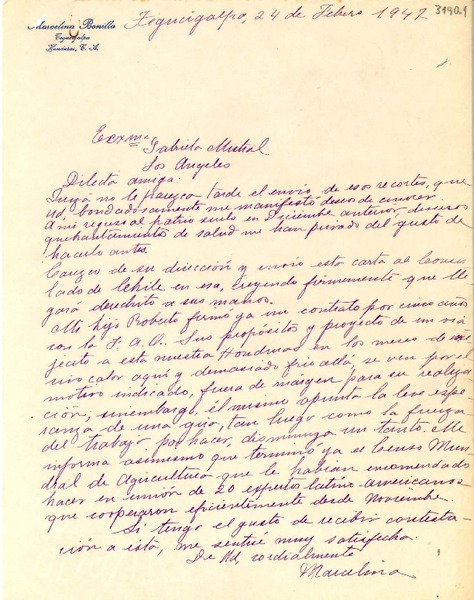 Marcelina Bonilla
Tegucigalpa
Honduras, C. A.
3190.1
Tegucigalpa, 24 de Febrero 1947
Excma
Gabriela Mistral
Los Angeles
Dilecta amiga:
Quizá no le parezca tarde el envío de esos recortes, que
Ud. bondadosamente me manifestó deseo de conocer.
A mi regreso al patrio suelo en Diciembre anterior, diversos
quebrantamientos de salud me han privado del gusto de
hacerlo antes.
Carezco de su dirección y envío esta carta al Consu
lado de Chile en esa, creyendo firmemente que lle
gará derechito a sus manos.
Mi hijo Roberto firmó ya un contrato por cinco años
con la F. A. O. Sus propósitos y proyecto de un via
jecito a esta nuestra Honduras en los meses de
rivo calor aquí y demasiado frío allá, se ven por el
motivo indicado, fuera de margen para su realiza
ción, sinembargo, el mismo apunta la leve espe
ranza de una gira, tan luego como la fuerza
del trabajo por hacer, disminuya un tanto. Me
informa asimismo que terminó ya el Censo Mun
dial de Agricultura que le habían encomendado
hacer en unión de 20 expertos latino-americanos
que cooperaron eficientemente desde Noviembre.
Si tengo el gusto de recibir contesta-
ción a ésta, me sentiré muy satisfecha.
De Ud. cordialmente
Marcelina